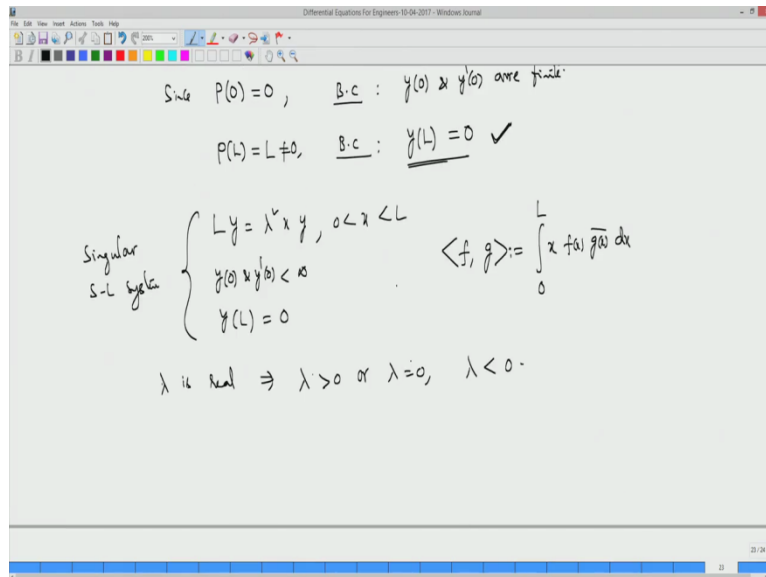 Differential Equations For Engineers-10-04-2017 - Windows Journal
File Edit View Insert Actions Tools Help
200%
B I
Since P(0) = 0, B.C : y(0) & y'(0) are finite.
P(L) = L ≠ 0, B.C : y(L) = 0 ✓
Singular S-L system
Ly = λ² x y, 0 < x < L
y(0) & y'(0) < ∞
y(L) = 0
<f, g> := ∫₀ᴸ x f(x) \overline{g(x)} dx
λ is real ⇒ λ > 0 or λ = 0, λ < 0.
23/24
23